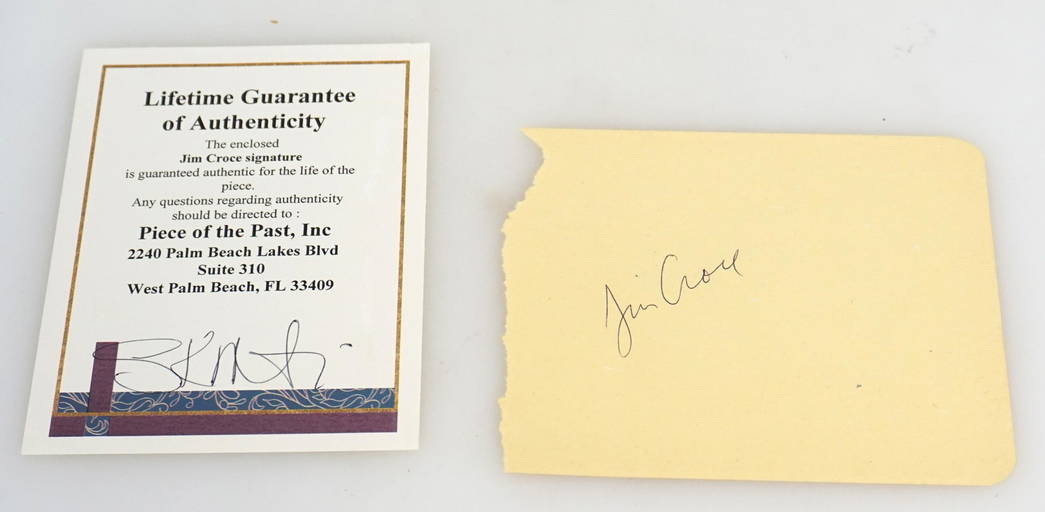 Lifetime Guarantee
of Authenticity
The enclosed
Jim Croce signature
is guaranteed authentic for the life of the
piece.
Any questions regarding authenticity
should be directed to :
Piece of the Past, Inc
2240 Palm Beach Lakes Blvd
Suite 310
West Palm Beach, FL 33409
Jim Croce